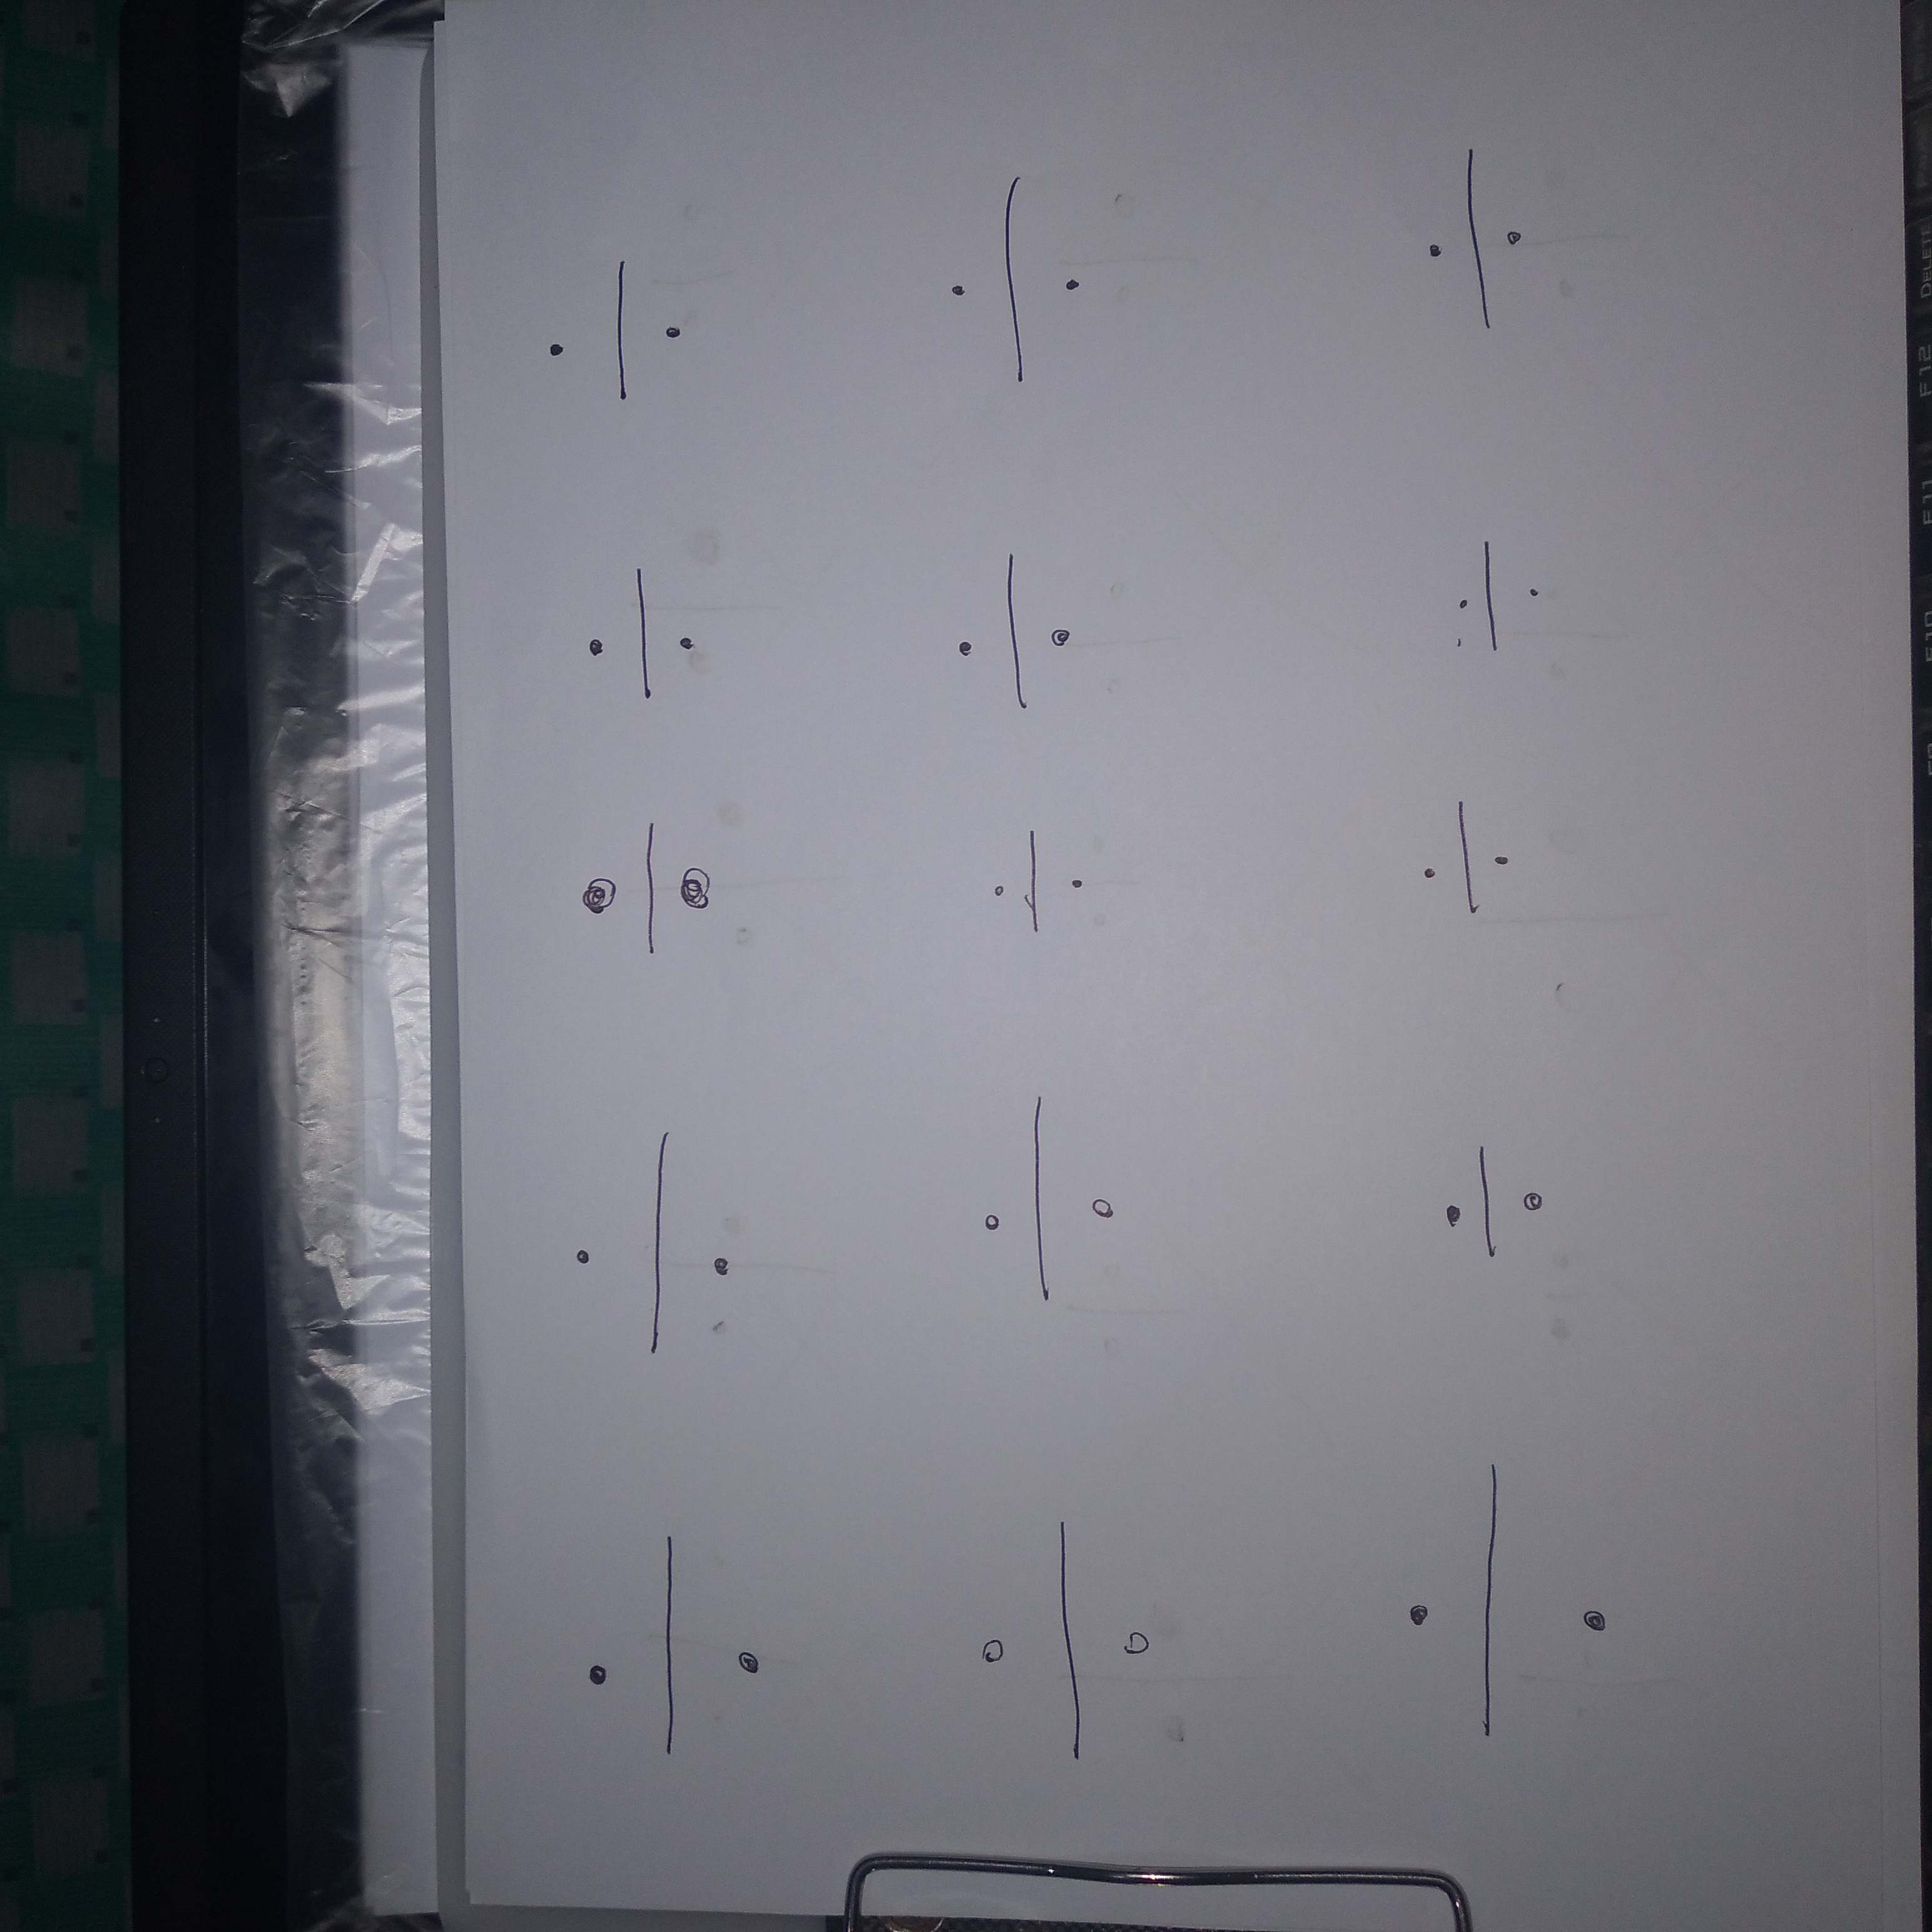 ÷ ÷ ÷ ÷ ÷
÷ ÷ ÷ ÷ ÷
÷ ÷ ÷ ÷ ÷
F9 F10 F11 F12 DELETE